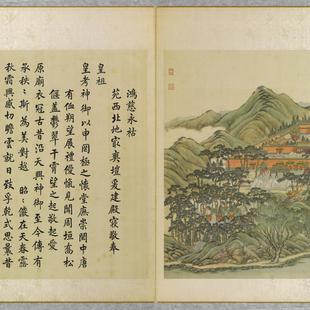 鴻慈永祜
苑西北地最爽塏爰建殿寢敬奉
皇祖
皇考神御以申罔極之懷堂廡崇閎中唐
有侐朔望展禮僾愾見聞周垣喬松
偃蓋鬱翠干霄望之起敬起愛
原廟衣冠古昔沿天興神御至今傳有
承秩〻斯為美對越 昭〻儼在天春露
秋霜興感切瞻雲就日致孚乾式思曩昔